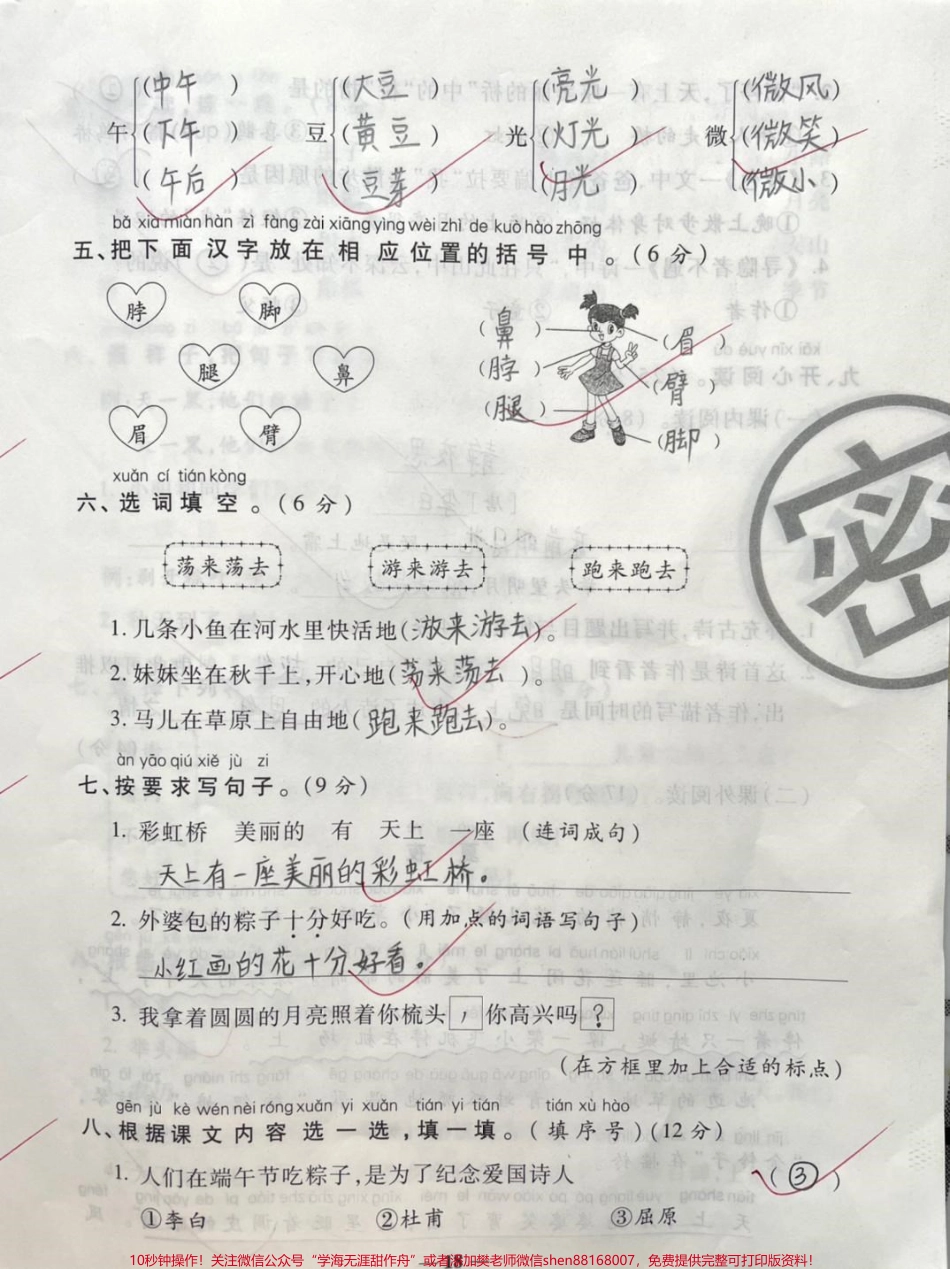 (中午) (大豆) (亮光) (微风)
午 (下午) 豆 (黄豆) 光 (灯光) 微 (微笑)
(午后) (豆芽) (月光) (微小)
bǎ xià miàn hàn zì fàng zài xiāng yìng wèi zhì de kuò hào zhōng
五、把下面汉字放在相应位置的括号中。(6分)
脖 脚
腿 鼻
眉 臂
(鼻) (眉)
(脖) (臂)
(腿) (脚)
密
xuǎn cí tián kòng
六、选词填空。(6分)
荡来荡去 游来游去 跑来跑去
1.几条小鱼在河水里快活地(游来游去)。
2.妹妹坐在秋千上,开心地(荡来荡去)。
3.马儿在草原上自由地(跑来跑去)。
àn yāo qiú xiě jù zi
七、按要求写句子。(9分)
1. 彩虹桥 美丽的 有 天上 一座 (连词成句)
天上有一座美丽的彩虹桥。
2. 外婆包的粽子十分好吃。(用加点的词语写句子)
小红画的花十分好看。
3. 我拿着圆圆的月亮照着你梳头,你高兴吗?
(在方框里加上合适的标点)
gēn jù kè wén nèi róng xuǎn yi xuǎn tián yi tián tián xù hào
八、根据课文内容选一选,填一填。(填序号)(12分)
1. 人们在端午节吃粽子,是为了纪念爱国诗人 (③)
①李白 ②杜甫 ③屈原
18
10秒钟操作!关注微信公众号“学海无涯甜作舟”或者添加樊老师微信shen88168007,免费提供完整可打印版资料!